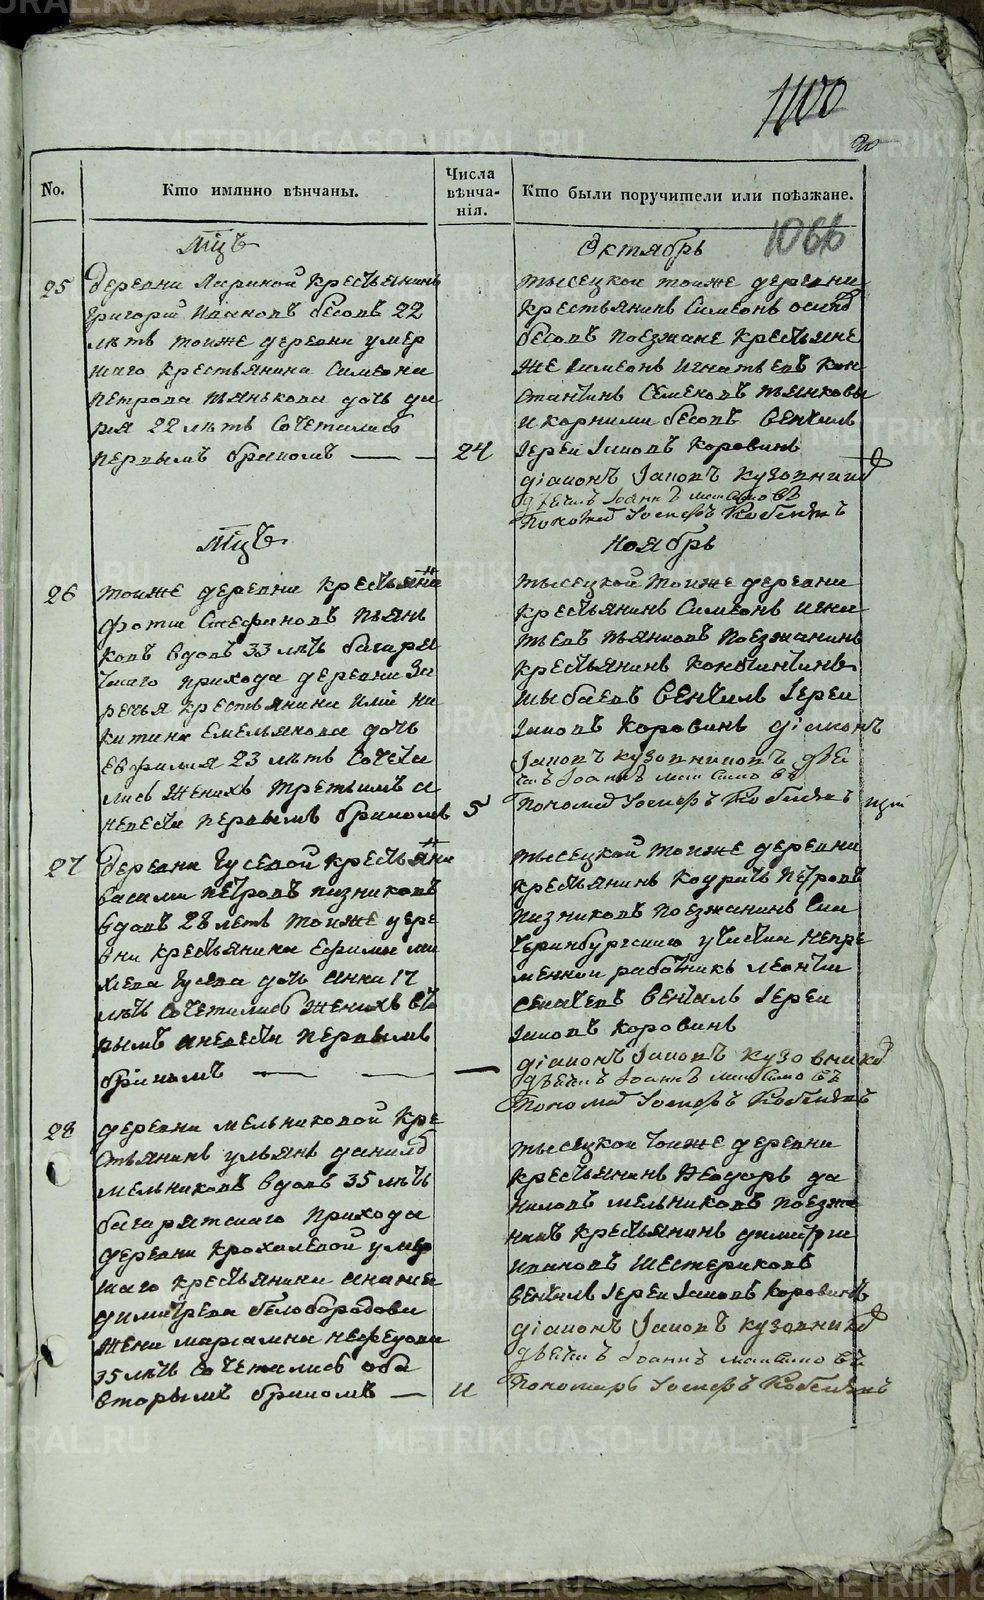 1100
No.
Кто имянно вѣнчаны.
Числа
вѣнча-
нія.
Кто были поручители или поѣзжане.
1066
Мцъ
25
деревни Лариной крестьянинъ
Григорій Ивановъ бесовъ 22
лѣтъ тоиже деревни умер
шаго крестьянина Симеона
Петрова Пьянкова дочь да
рья 22 лѣтъ сочетались
первымъ бракомъ
24
Октябрь
тысецкои тоиже деревни
крестьянинъ Симеонъ
бесовъ поезжане крестьяне
же Симеонъ Игнатьевъ кон
стантинъ Семеновъ пьянковы
и корнили бесовъ венчалъ
Іереи Іаковъ Коровинъ
діаконъ Іаковъ кузовников
дьячекъ Іоаннъ
Пономарь Іосифъ
Мцъ
26
тоиже деревни крестьянинъ
фоти Стефановъ пьянь
ковъ вдовъ 33 лѣтъ багаряк
скаго прихода деревни За
речья крестьянина Иліи Ни
китина Емельянова дочь
Евфимия 23 лѣтъ сочета
лись женихъ третьимъ а
невеста первымъ бракомъ
5
Ноябрь
тысецкой тоиже деревни
крестьянинъ Симеонъ игна
тьевъ пьянковъ поезжанинъ
крестьянинъ константинъ
шыбаевъ венчалъ Іереи
Іаковъ Коровинъ діаконъ
Іаковъ кузовниковъ дьяч
екъ Іоаннъ
Пономарь Іосифъ
27
деревни Гусевой крестьянинъ
василеи петровъ пизниковъ
вдовъ 28 летъ тоиже дере
вни крестьянина Ефима ми
хѣева Гусева дочь анна 17
лѣтъ сочетались женихъ вто
рымъ а невеста первымъ
бракомъ
тысецкой тоиже деревни
крестьянинъ кондратъ петровъ
пизниковъ поезжанинъ Ека
теринбургскаго участка непре
менной работникъ леонтеи
венчалъ Іереи
Іаковъ Коровинъ
діаконъ Іаковъ кузовников
дьячекъ Іоаннъ
Пономарь Іосифъ
28
деревни мельниковой кре
стьянинъ ульянъ данилов
мельниковъ вдовъ 35 лѣтъ
багарякскаго прихода
деревни Крохалевой умер
шаго крестьянина ананьи
димитрева белобородова
жена мариамна нефедова
35 лѣтъ сочетались оба
вторымъ бракомъ
11
тысецкои тоиже деревни
крестьянинъ Феодоръ да
ниловъ мельниковъ поезжа
нинъ крестьянинъ димитри
ивановъ шестериковъ
венчалъ Іереи Іаковъ Коровинъ
діаконъ Іаковъ кузовников
дьячекъ Іоаннъ
Пономарь Іосифъ
METRIKI.GASO-URAL.RU